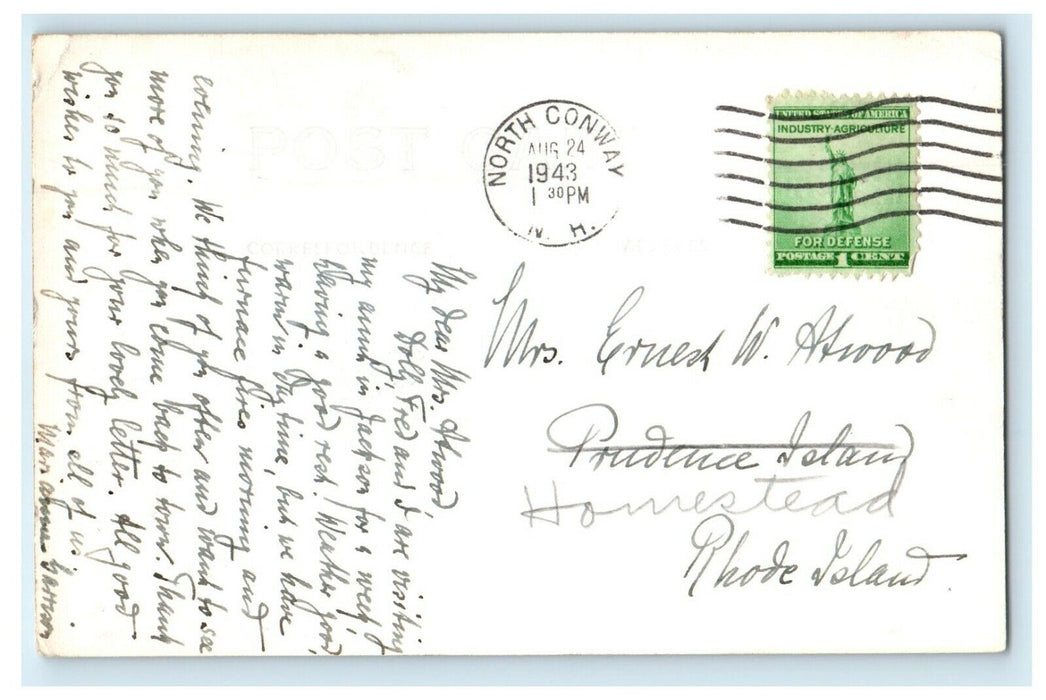 POST CARD
CORRESPONDENCE
ADDRESS
NORTH CONWAY
AUG 24
1943
1 30 PM
N. H.
UNITED STATES OF AMERICA
INDUSTRY AGRICULTURE
FOR DEFENSE
POSTAGE 1 CENT
Mrs. Ernest W. Atwood
Prudence Island
Homestead
Rhode Island.
My dear Mrs. Atwood,
Dolly, Fred and I are visiting
my aunt in Jackson for a week,
having a good rest. Weather good,
warm in day time, but we have
furnace fires morning and
evening. We think of you often and want to see
more of you when you come back to town. Thank
you so much for your lovely letter. All good
wishes to you and yours from all of us.
Marianne